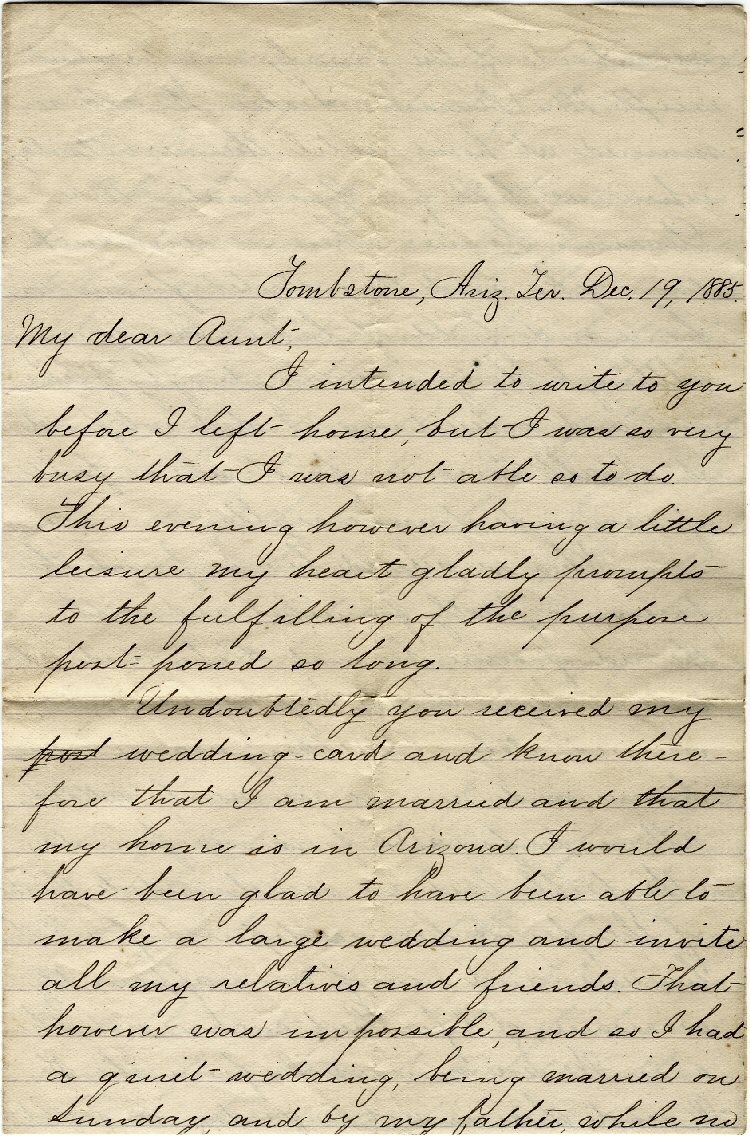 Tombstone, Ariz. Ter. Dec. 19, 1885.
My dear Aunt,
I intended to write to you
before I left home, but I was so very
busy that I was not able so to do.
This evening however having a little
leisure my heart gladly prompts
to the fulfilling of the purpose
post-poned so long.
Undoubtedly you received my
post wedding-card and know there-
fore that I am married and that
my home is in Arizona. I would
have been glad to have been able to
make a large wedding and invite
all my relatives and friends. That
however was impossible, and so I had
a quiet wedding, being married on
Sunday, and by my father, while no